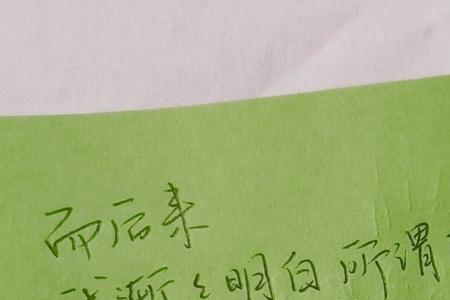 而后来
我渐々明白所谓